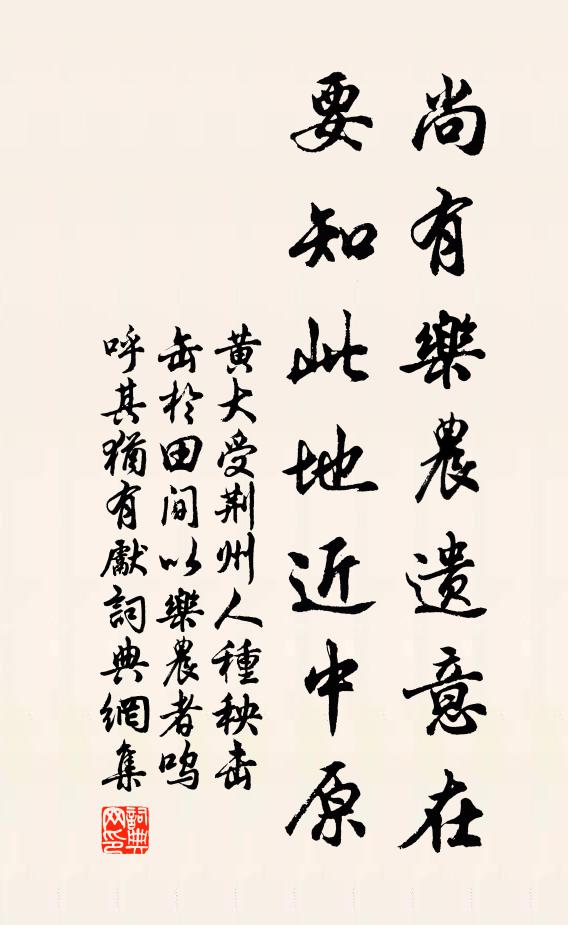 尚有樂農遗意在
要知此地近中原
黄大受荆州人種秧击
缶於田间以樂農者呜
呼其猶有獻詞典網集
詞典
网印